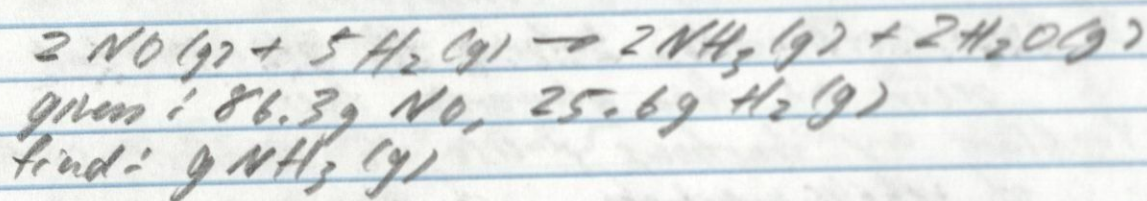 2 NO (g) + 5 H₂ (g) → 2 NH₃ (g) + 2 H₂O (g)
given: 86.3g NO, 25.6g H₂ (g)
find: g NH₃ (g)